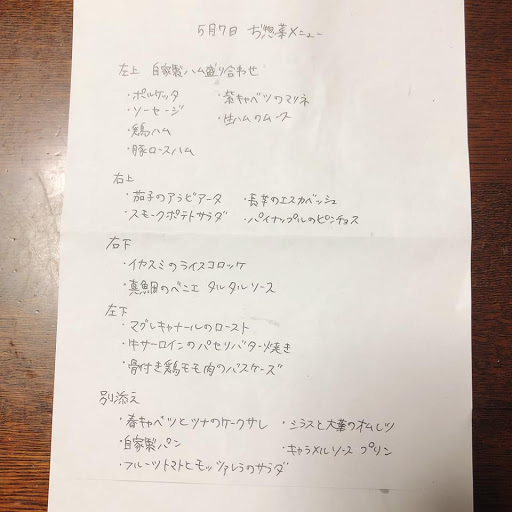 5月7日 お惣菜メニュー
左上 自家製ハム盛り合わせ
・ポルケッタ ・紫キャベツのマリネ
・ソーセージ ・生ハムのムース
・鶏ハム
・豚ロースハム
右上
・茄子のアラビアータ ・長芋のエスカベッシュ
・スモークポテトサラダ ・パイナップルのピンチョス
右下
・イカスミのライスコロッケ
・真鯛のベニエ タルタルソース
左下
・マグレキャナールのロースト
・牛サーロインのパセリバター焼き
・骨付き鶏モモ肉のバスケーズ
別添え
・春キャベツとツナのケークサレ ・シラスと大葉のオムレツ
・自家製パン ・キャラメルソース プリン
・フルーツトマトとモッツァレラのサラダ